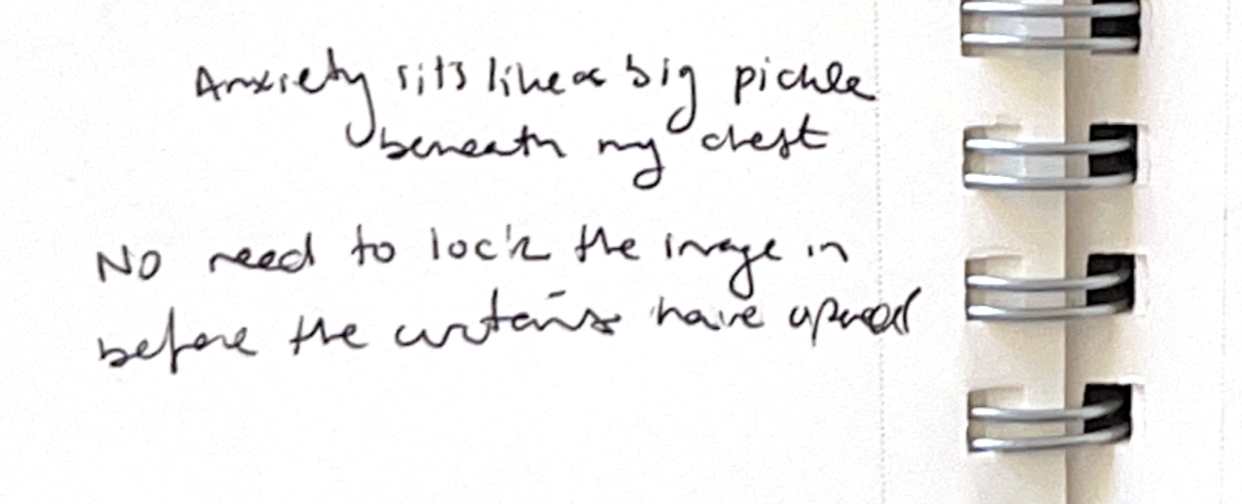 Anxiety sits like a big pickle
beneath my chest
No need to lock the image in
before the curtains have opened